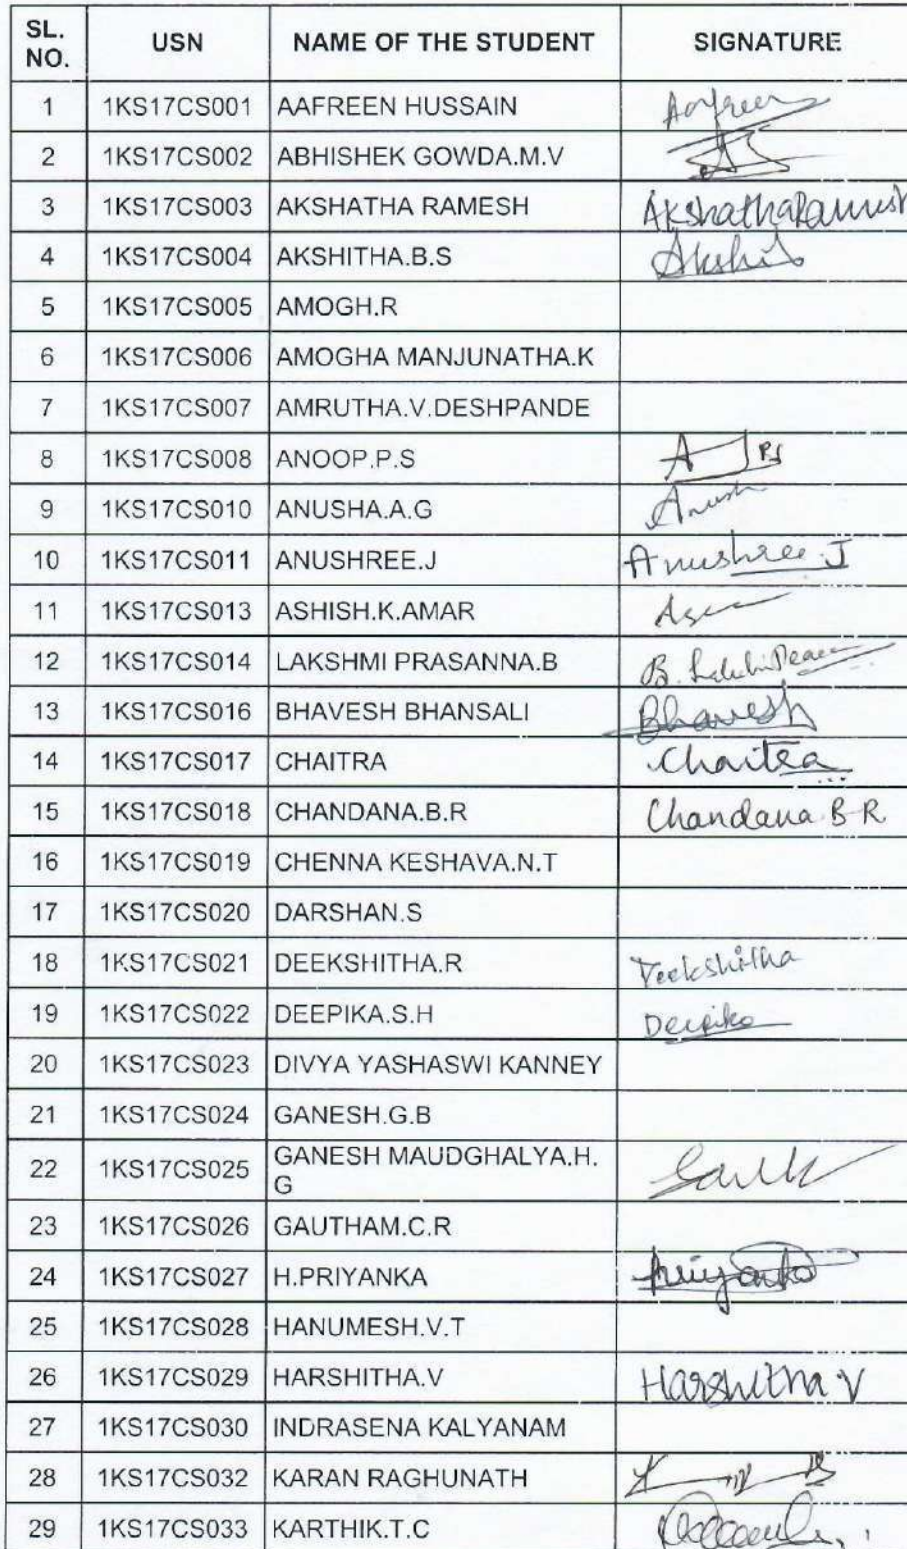 SL. NO. USN NAME OF THE STUDENT SIGNATURE
1 1KS17CS001 AAFREEN HUSSAIN Aafreen
2 1KS17CS002 ABHISHEK GOWDA.M.V
3 1KS17CS003 AKSHATHA RAMESH Akshatha Ramesh
4 1KS17CS004 AKSHITHA.B.S
5 1KS17CS005 AMOGH.R
6 1KS17CS006 AMOGHA MANJUNATHA.K
7 1KS17CS007 AMRUTHA.V.DESHPANDE
8 1KS17CS008 ANOOP.P.S
9 1KS17CS010 ANUSHA.A.G
10 1KS17CS011 ANUSHREE.J Anushree J
11 1KS17CS013 ASHISH.K.AMAR
12 1KS17CS014 LAKSHMI PRASANNA.B
13 1KS17CS016 BHAVESH BHANSALI Bhavesh
14 1KS17CS017 CHAITRA Chaitra
15 1KS17CS018 CHANDANA.B.R Chandana B R
16 1KS17CS019 CHENNA KESHAVA.N.T
17 1KS17CS020 DARSHAN.S
18 1KS17CS021 DEEKSHITHA.R Deekshitha
19 1KS17CS022 DEEPIKA.S.H Deepika
20 1KS17CS023 DIVYA YASHASWI KANNEY
21 1KS17CS024 GANESH.G.B
22 1KS17CS025 GANESH MAUDGHALYA.H.G
23 1KS17CS026 GAUTHAM.C.R
24 1KS17CS027 H.PRIYANKA Priyanka
25 1KS17CS028 HANUMESH.V.T
26 1KS17CS029 HARSHITHA.V Harshitha V
27 1KS17CS030 INDRASENA KALYANAM
28 1KS17CS032 KARAN RAGHUNATH
29 1KS17CS033 KARTHIK.T.C